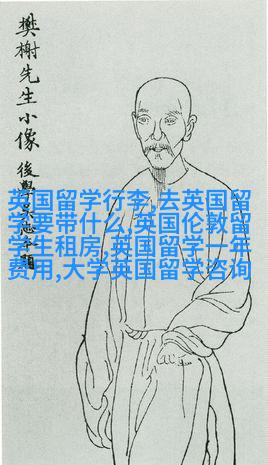 樊榭先生小像
後學
英国留学行李,去英国留
学要带什么,英国伦敦留
学生租房,英国留学一年
费用,大学英国留学咨询